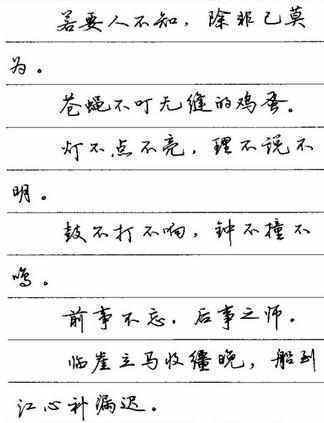 若要人不知，除非己莫
为。
苍蝇不叮无缝的鸡蛋。
灯不点不亮，理不说不
明。
鼓不打不响，钟不撞不
鸣。
前事不忘，后事之师。
临崖立马收缰晚，船到
江心补漏迟。